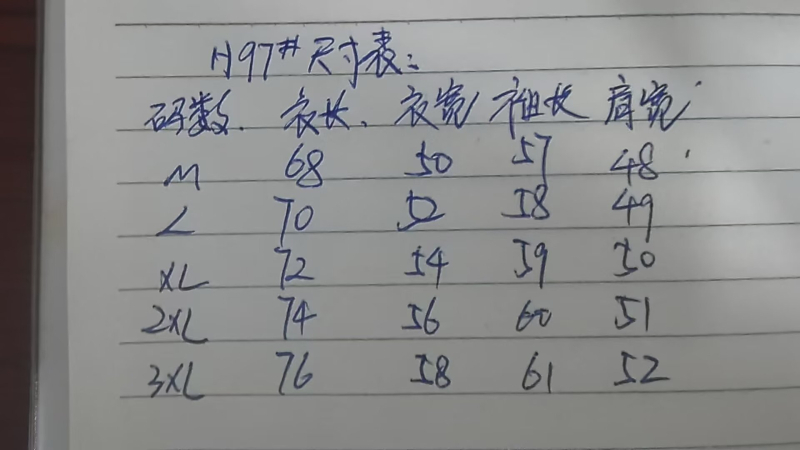 H97# 尺寸表:
码数. 衣长. 衣宽 袖长 肩宽
M 68 50 57 48
L 70 52 58 49
XL 72 54 59 50
2XL 74 56 60 51
3XL 76 58 61 52